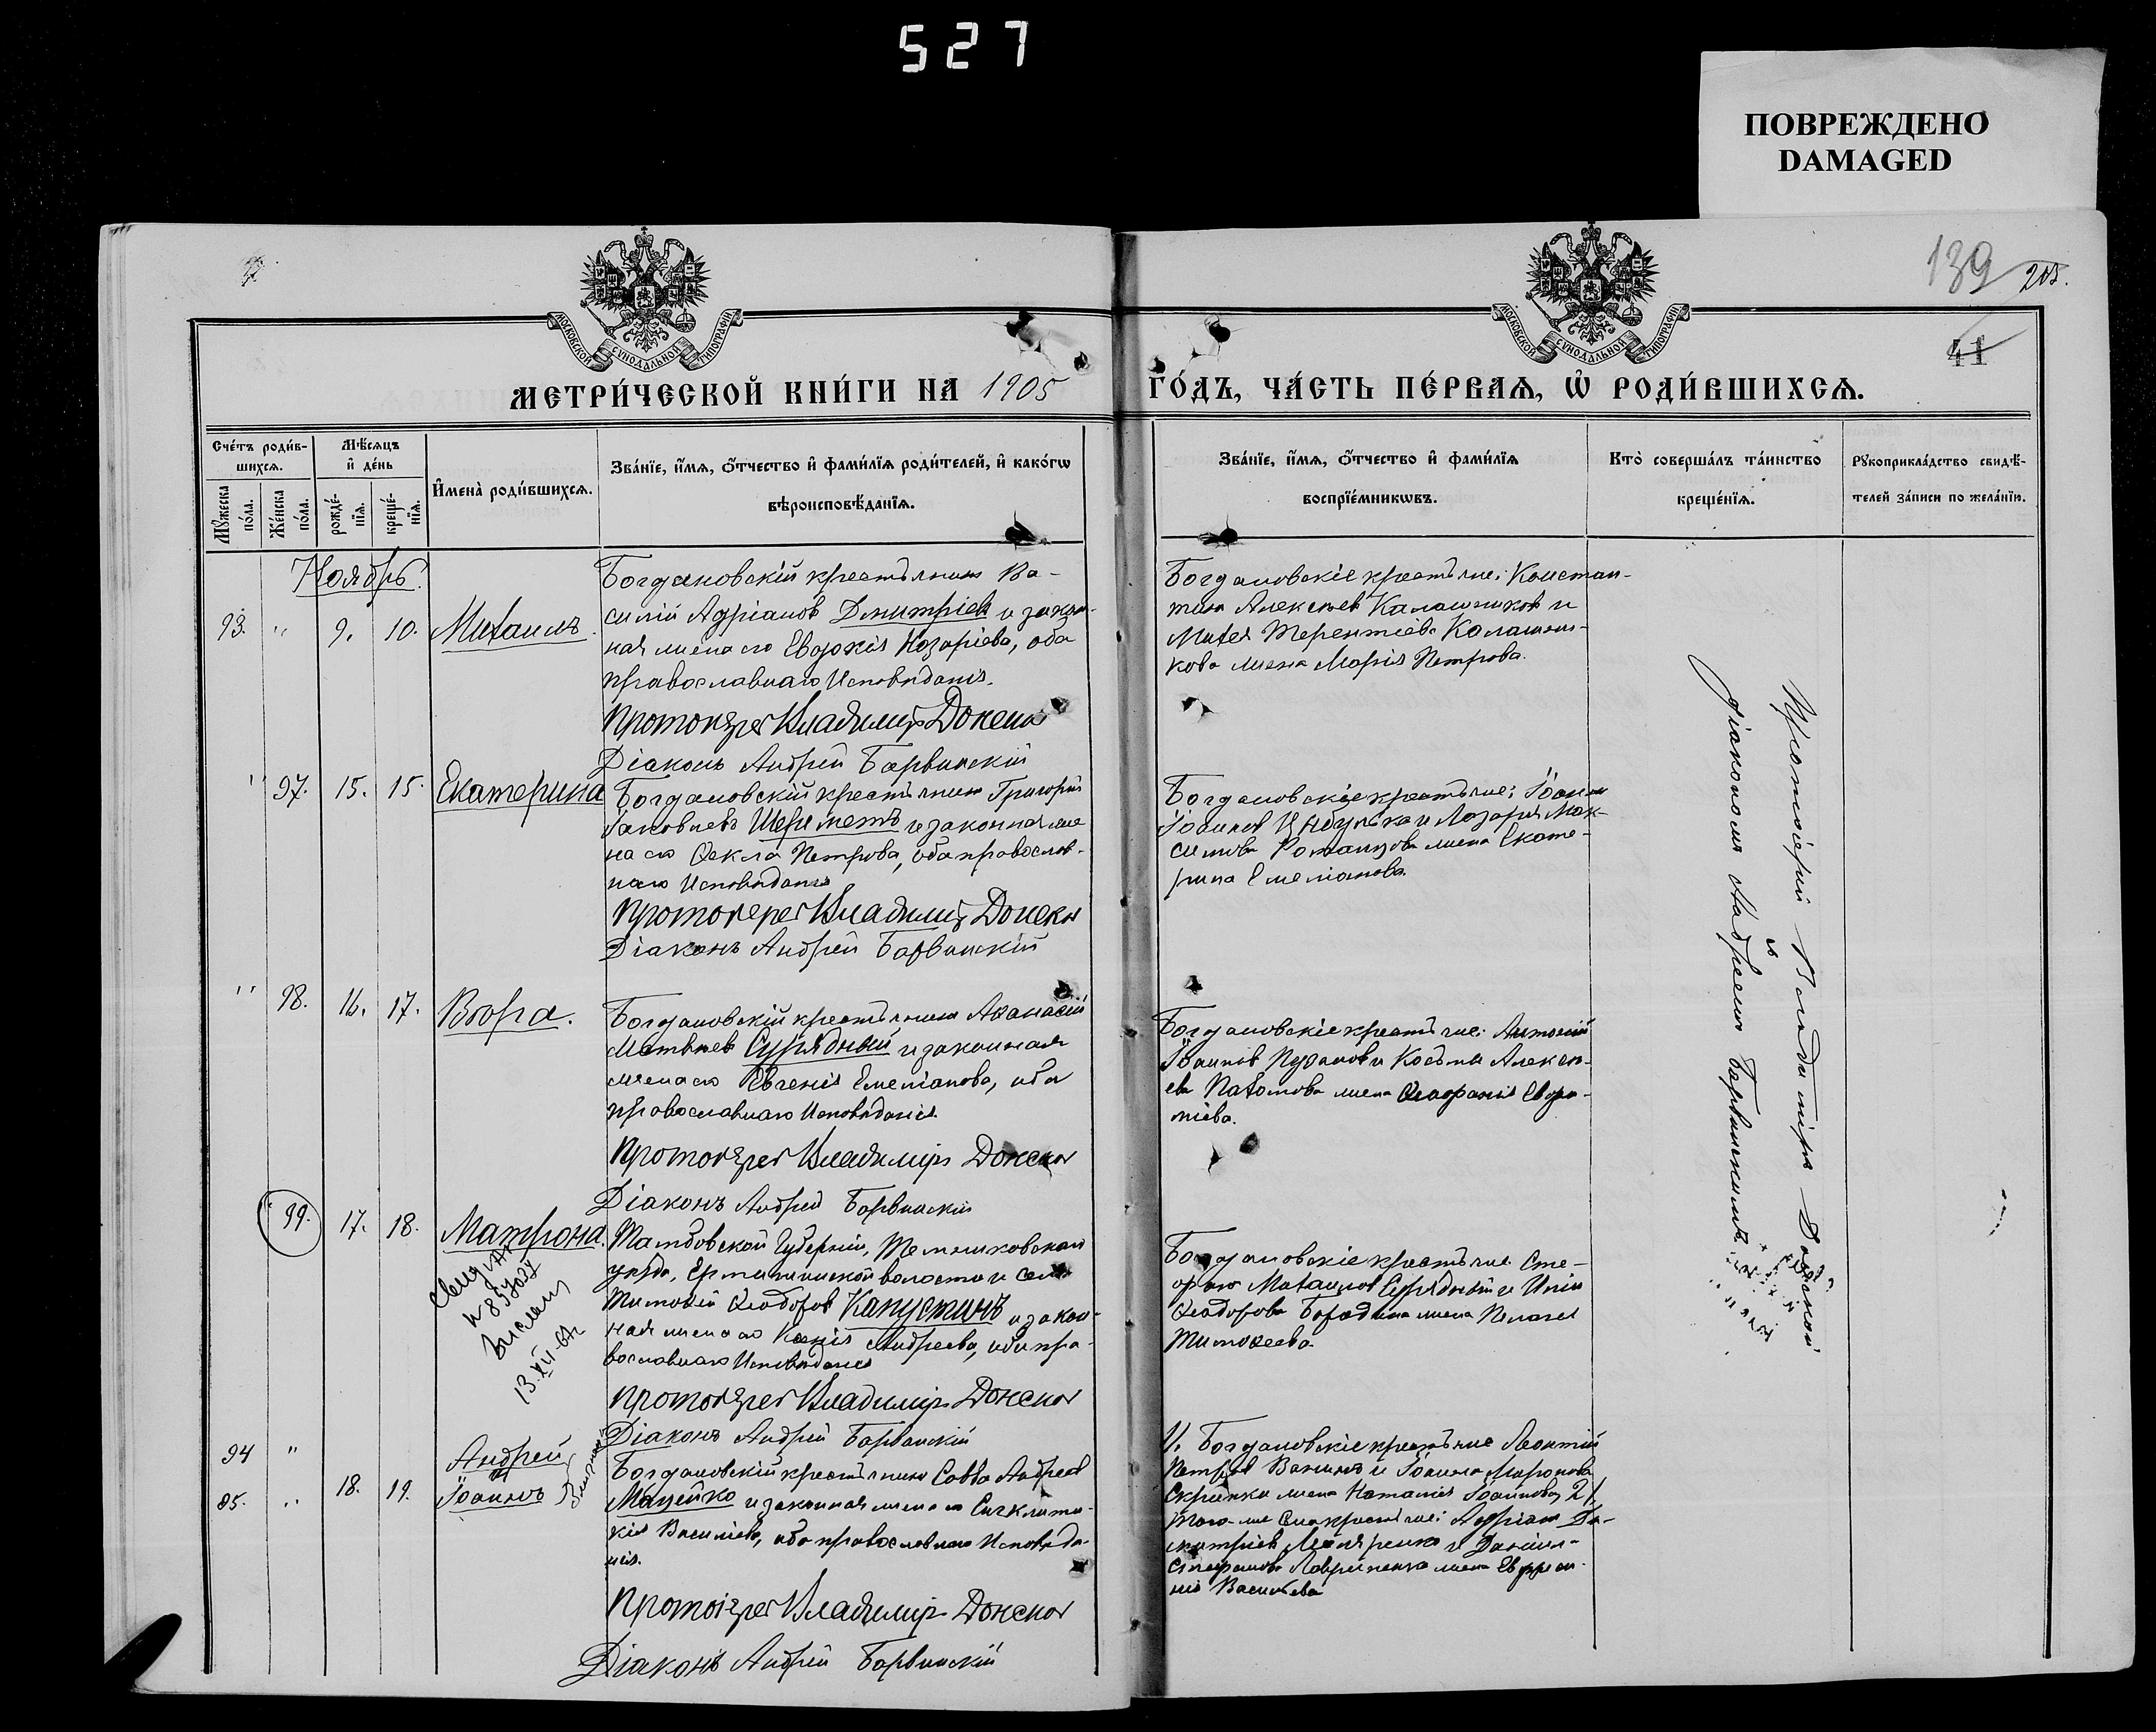 527
ПОВРЕЖДЕНО
DAMAGED
139
205.
41
МОСКОВСКОЙ СѴНОДАЛЬНОЙ ТИПОГРАФІИ
МОСКОВСКОЙ СѴНОДАЛЬНОЙ ТИПОГРАФІИ
МЕТРИ́ЧЕСКОЙ КНИ́ГИ НА 1905 ГО́ДЪ, ЧА́СТЬ ПЕ́РВАѦ, Ѡ҆ РОДИ́ВШИХСѦ.
Сче́тъ роди́в-
шихсѧ.
Мꙋ́жеска по́ла.
Же́нска по́ла.
Мѣ́сѧцъ
и҆ де́нь
рожде́-
нїѧ.
креще́-
нїѧ.
И҆мена̀ роди́вшихсѧ.
Зва́нїе, и҆́мѧ, ѻ҆́тчество и҆ фами́лїѧ роди́телей, и҆ како́гѡ
вѣроисповѣ́данїѧ.
Зва́нїе, и҆́мѧ, ѻ҆́тчество и҆ фами́лїѧ
воспрїе́мникѡвъ.
Кто̀ соверша́лъ та́инство
креще́нїѧ.
Рꙋкоприкла́дство свидѣ́-
телей за́писи по жела́нїи.
Ноябрь.
93. " 9. 10. Михаилъ.
Богдановскій крестьянинъ Ва-
силій Адріановъ Дмитріевъ и закон-
ная жена его Евдокія Назаріева, оба
православнаго Исповѣданія.
Протоіерей Владиміръ Донской
Діаконъ Андрей Барвинскій
Богдановскіе крестьяне: Констан-
тинъ Алексѣевъ Калашниковъ и
Михея Терентіева Калашни-
кова жена Марія Петрова.
" 97. 15. 15. Екатерина
Богдановскій крестьянинъ Григорій
Іаковлевъ Шереметъ и законная же-
на его Ѳекла Петрова, оба православ-
наго Исповѣданія
Протоіерей Владиміръ Донской
Діаконъ Андрей Барвинскій
Богдановскіе крестьяне: Іоаннъ
Іоанновъ и Лазаря Мак-
симова жена Екате-
рина Емеліанова.
" 98. 16. 17. Вѣра.
Богдановскій крестьянинъ Аѳанасій
Матвѣевъ Сурядный и законная
жена его Евгенія Емеліанова, оба
православнаго Исповѣданія.
Протоіерей Владиміръ Донской
Діаконъ Андрей Барвинскій
Богдановскіе крестьяне: Антоній
Іоанновъ Пузановъ и Косьмы Алексѣ-
ева Пахомова жена
" 99. 17. 18. Матрона.
Тамбовской Губерніи, Темниковскаго
уѣзда, волости и села
Тимоѳей Ѳеодоровъ Капустинъ и закон-
ная жена его Ксенія Андреева, оба пра-
вославнаго Исповѣданія
Протоіерей Владиміръ Донской
Діаконъ Андрей Барвинскій
Богдановскіе крестьяне: Сте-
фанъ Михаиловъ Сурядный и
Ѳеодорова Бородина жена Пелагея
Тимоѳеева.
94 " Андрей
и
95. " 18. 19. Іоаннъ
Богдановскій крестьянинъ Савва Андреевъ
Мацейко и законная жена его Синклити-
кія Василіева, оба православнаго Исповѣда-
нія.
Протоіерей Владиміръ Донской
Діаконъ Андрей Барвинскій
1/. Богдановскіе крестьяне Леонтій
Петровъ Ванинъ и Іоанна Миронова
Скрипки жена Наталія Іоаннова, 2/.
того-же села крестьяне: Адріанъ Ди-
митріевъ и Даніила
Стефанова Лавриненка жена Евфроси-
нія Василіева
Протоіерей Владиміръ Донской
и
діакономъ Андреемъ Барвинскимъ